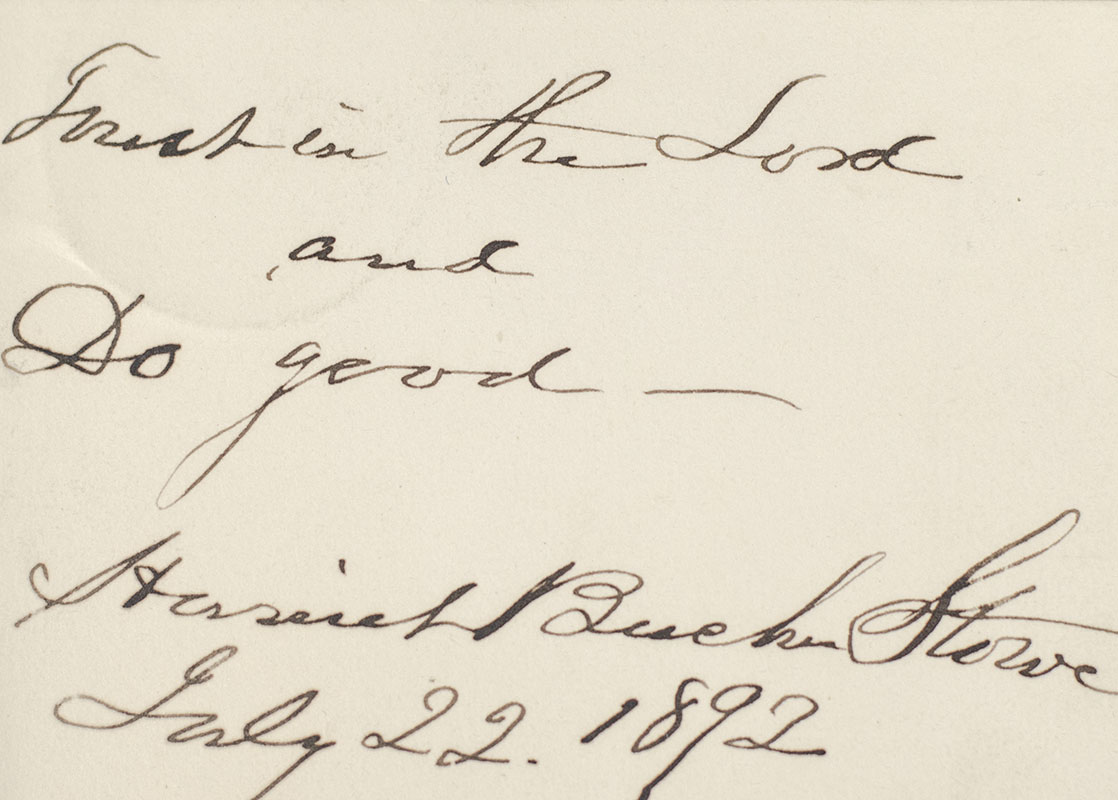 Trust in the Lord
and
Do good —
Harriet Beecher Stowe
July 22. 1892